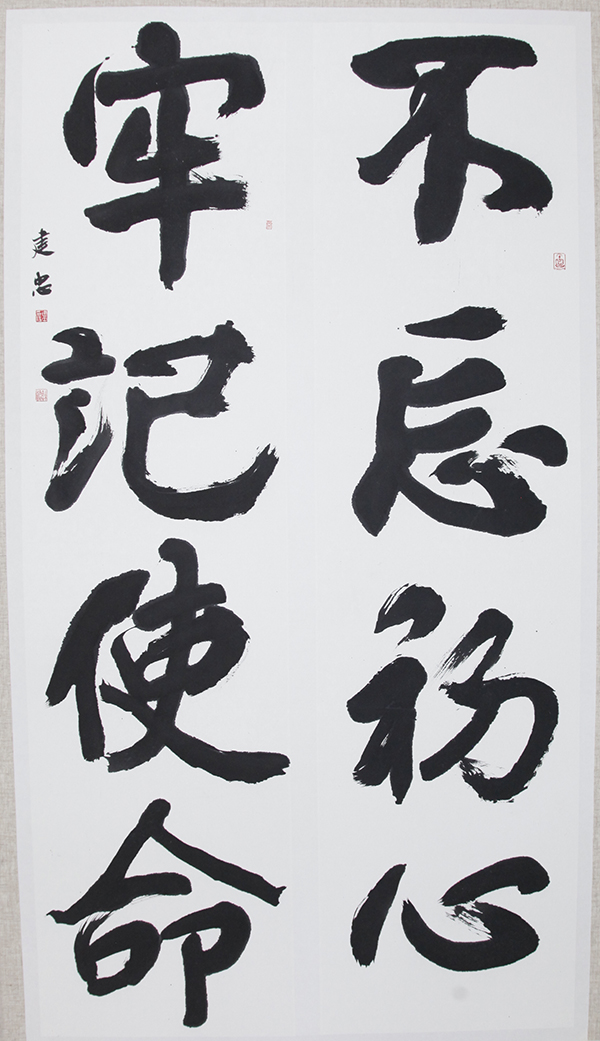 不忘初心
牢记使命
建忠